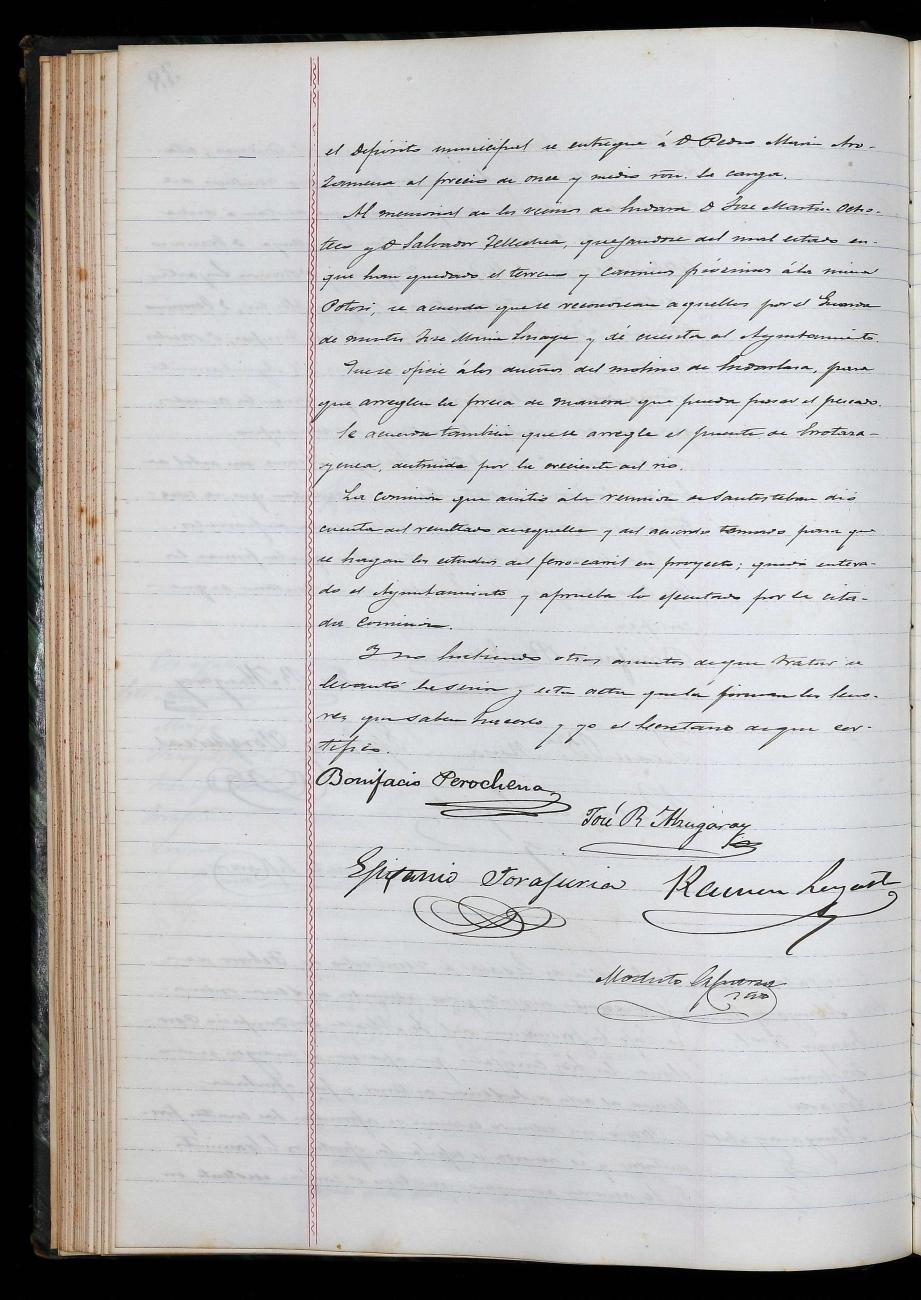 el Depósito municipal se entregue á D Pedro Maria Aro-
zamena al precio de once y medio rsn. la carga.
Al memorial de los vecinos de Endara D Jose Martin Ocho-
teco y D Salvador Tellechea, quejandose del mal estado en
que han quedado el terreno y caminos próximos á la mina
Potosi, se acuerda que se reconozcan aquellos por el Guarda
de montes Jose Maria y dé cuenta al Ayuntamiento.
Que se oficie á los dueños del molino de Endarlasa, para
que arreglen la presa de manera que pueda pasar el pescado.
Se acuerda tambien que se arregle el puente de Erotaza-
genea, destruido por la creciente del rio.
La comision que asistió á la reunion de Santesteban dió
cuenta del resultado de aquella y del acuerdo tomado para que
se hagan los estudios del ferro-carril en proyecto; quedó entera-
do el Ayuntamiento y aprueba lo ejecutado por la cita-
da comision.
Y no habiendo otros asuntos de que tratar se
levantó la sesion y esta acta que la firman los Seño-
res que saben hacerlo y yo el Secretario de que cer-
tifico.
Bonifacio Perochena
José R Alzugaray
Epifanio Torafuria Ramon
Modesto